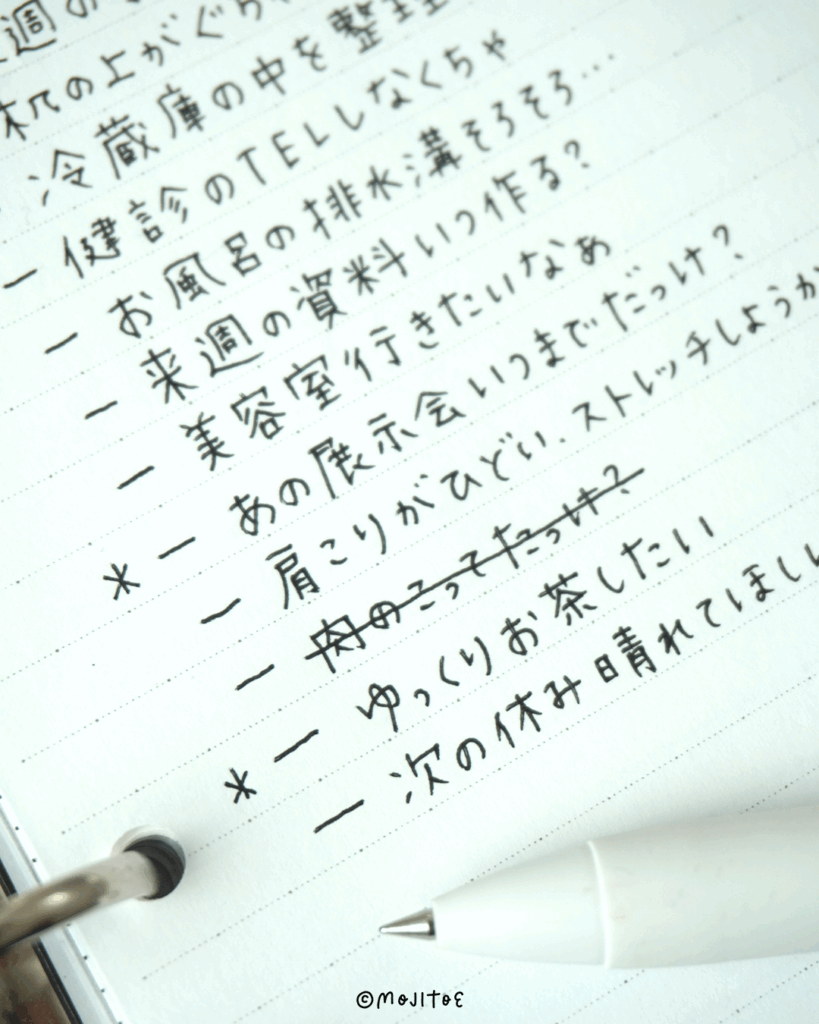 週の
机の上がぐち
冷蔵庫の中を整理
— 健診のTELしなくちゃ
— お風呂の排水溝そろそろ…
— 来週の資料いつ作る？
— 美容室行きたいなぁ
* — あの展示会いつまでだっけ？
— 肩こりがひどい、ストレッチしようか
— 肉のこってたっけ？
* — ゆっくりお茶したい
— 次の休み晴れてほしい
©MOJITOE